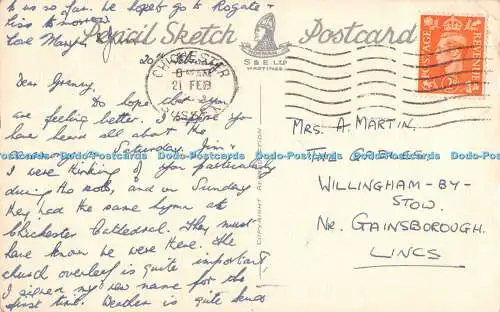 to us so far. We hope to go to Rogate &
Liss tomorrow
Love Mary
Pencil Sketch Postcard
NORMAN
S & E. LTD
HASTINGS
CHICHESTER
21 FEB
SUSSEX
POSTAGE REVENUE
2D
Dear Granny,
Do hope that you
are feeling better. I suppose you
have heard all about the
Saturday. Jim &
I were thinking of you particularly
during the solo, and on Sunday
they had the same hymn at
Chichester Cathedral. They must
have known we were there. The
church overleaf is quite important,
I signed my new name for the
first time. Weather is quite kind
COPYRIGHT REPRODUCTION
MRS. A. MARTIN.
THE GABLES
WILLINGHAM-BY-
STOW.
NR. GAINSBOROUGH.
LINCS
Dodo-Postcards Dodo-Postcards Dodo-Postcards Dodo-Postcards Dodo-Postcards